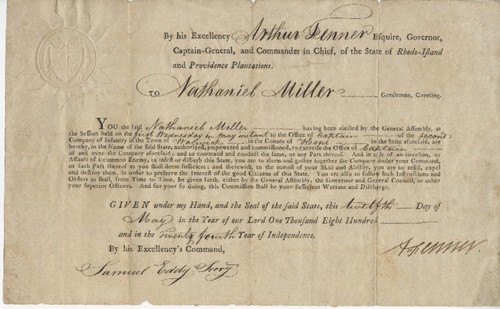 By his Excellency Arthur Fenner Esquire, Governor,
Captain-General, and Commander in Chief, of the State of Rhode-Island
and Providence Plantations.
To Nathaniel Miller Gentleman, Greeting.
YOU the said Nathaniel Miller having been elected by the General Assembly, at
the Session held on the first Wednesday in May instant to the Office of Captain of the second
Company of Infantry in the Town of Warwick in the County of Kent in the State aforesaid, are
hereby, in the Name of the said State, authorized, empowered and commissioned, to exercise the Office of Captain
of and over the Company aforesaid; and to command and conduct the same, or any Part thereof. And in case of an Invasion, or
Assault of a common Enemy, to infest or disturb this State, you are to alarm and gather together the Company under your Command,
or such Part thereof as you shall deem sufficient; and therewith, to the utmost of your Skill and Ability, you are to resist, expel
and destroy them, in order to preserve the Interest of the good Citizens of this State. You are also to follow such Instructions and
Orders as shall, from Time to Time, be given forth, either by the General Assembly, the Governor and General Council, or other
your superior Officers. And for your so doing, this Commission shall be your sufficient Warrant and Discharge.
GIVEN under my Hand, and the Seal of the said State, this twelfth Day of
May in the Year of our Lord One Thousand Eight Hundred
and in the Twenty fourth Year of Independence.
By his Excellency's Command,
A Fenner
Samuel Eddy Secry